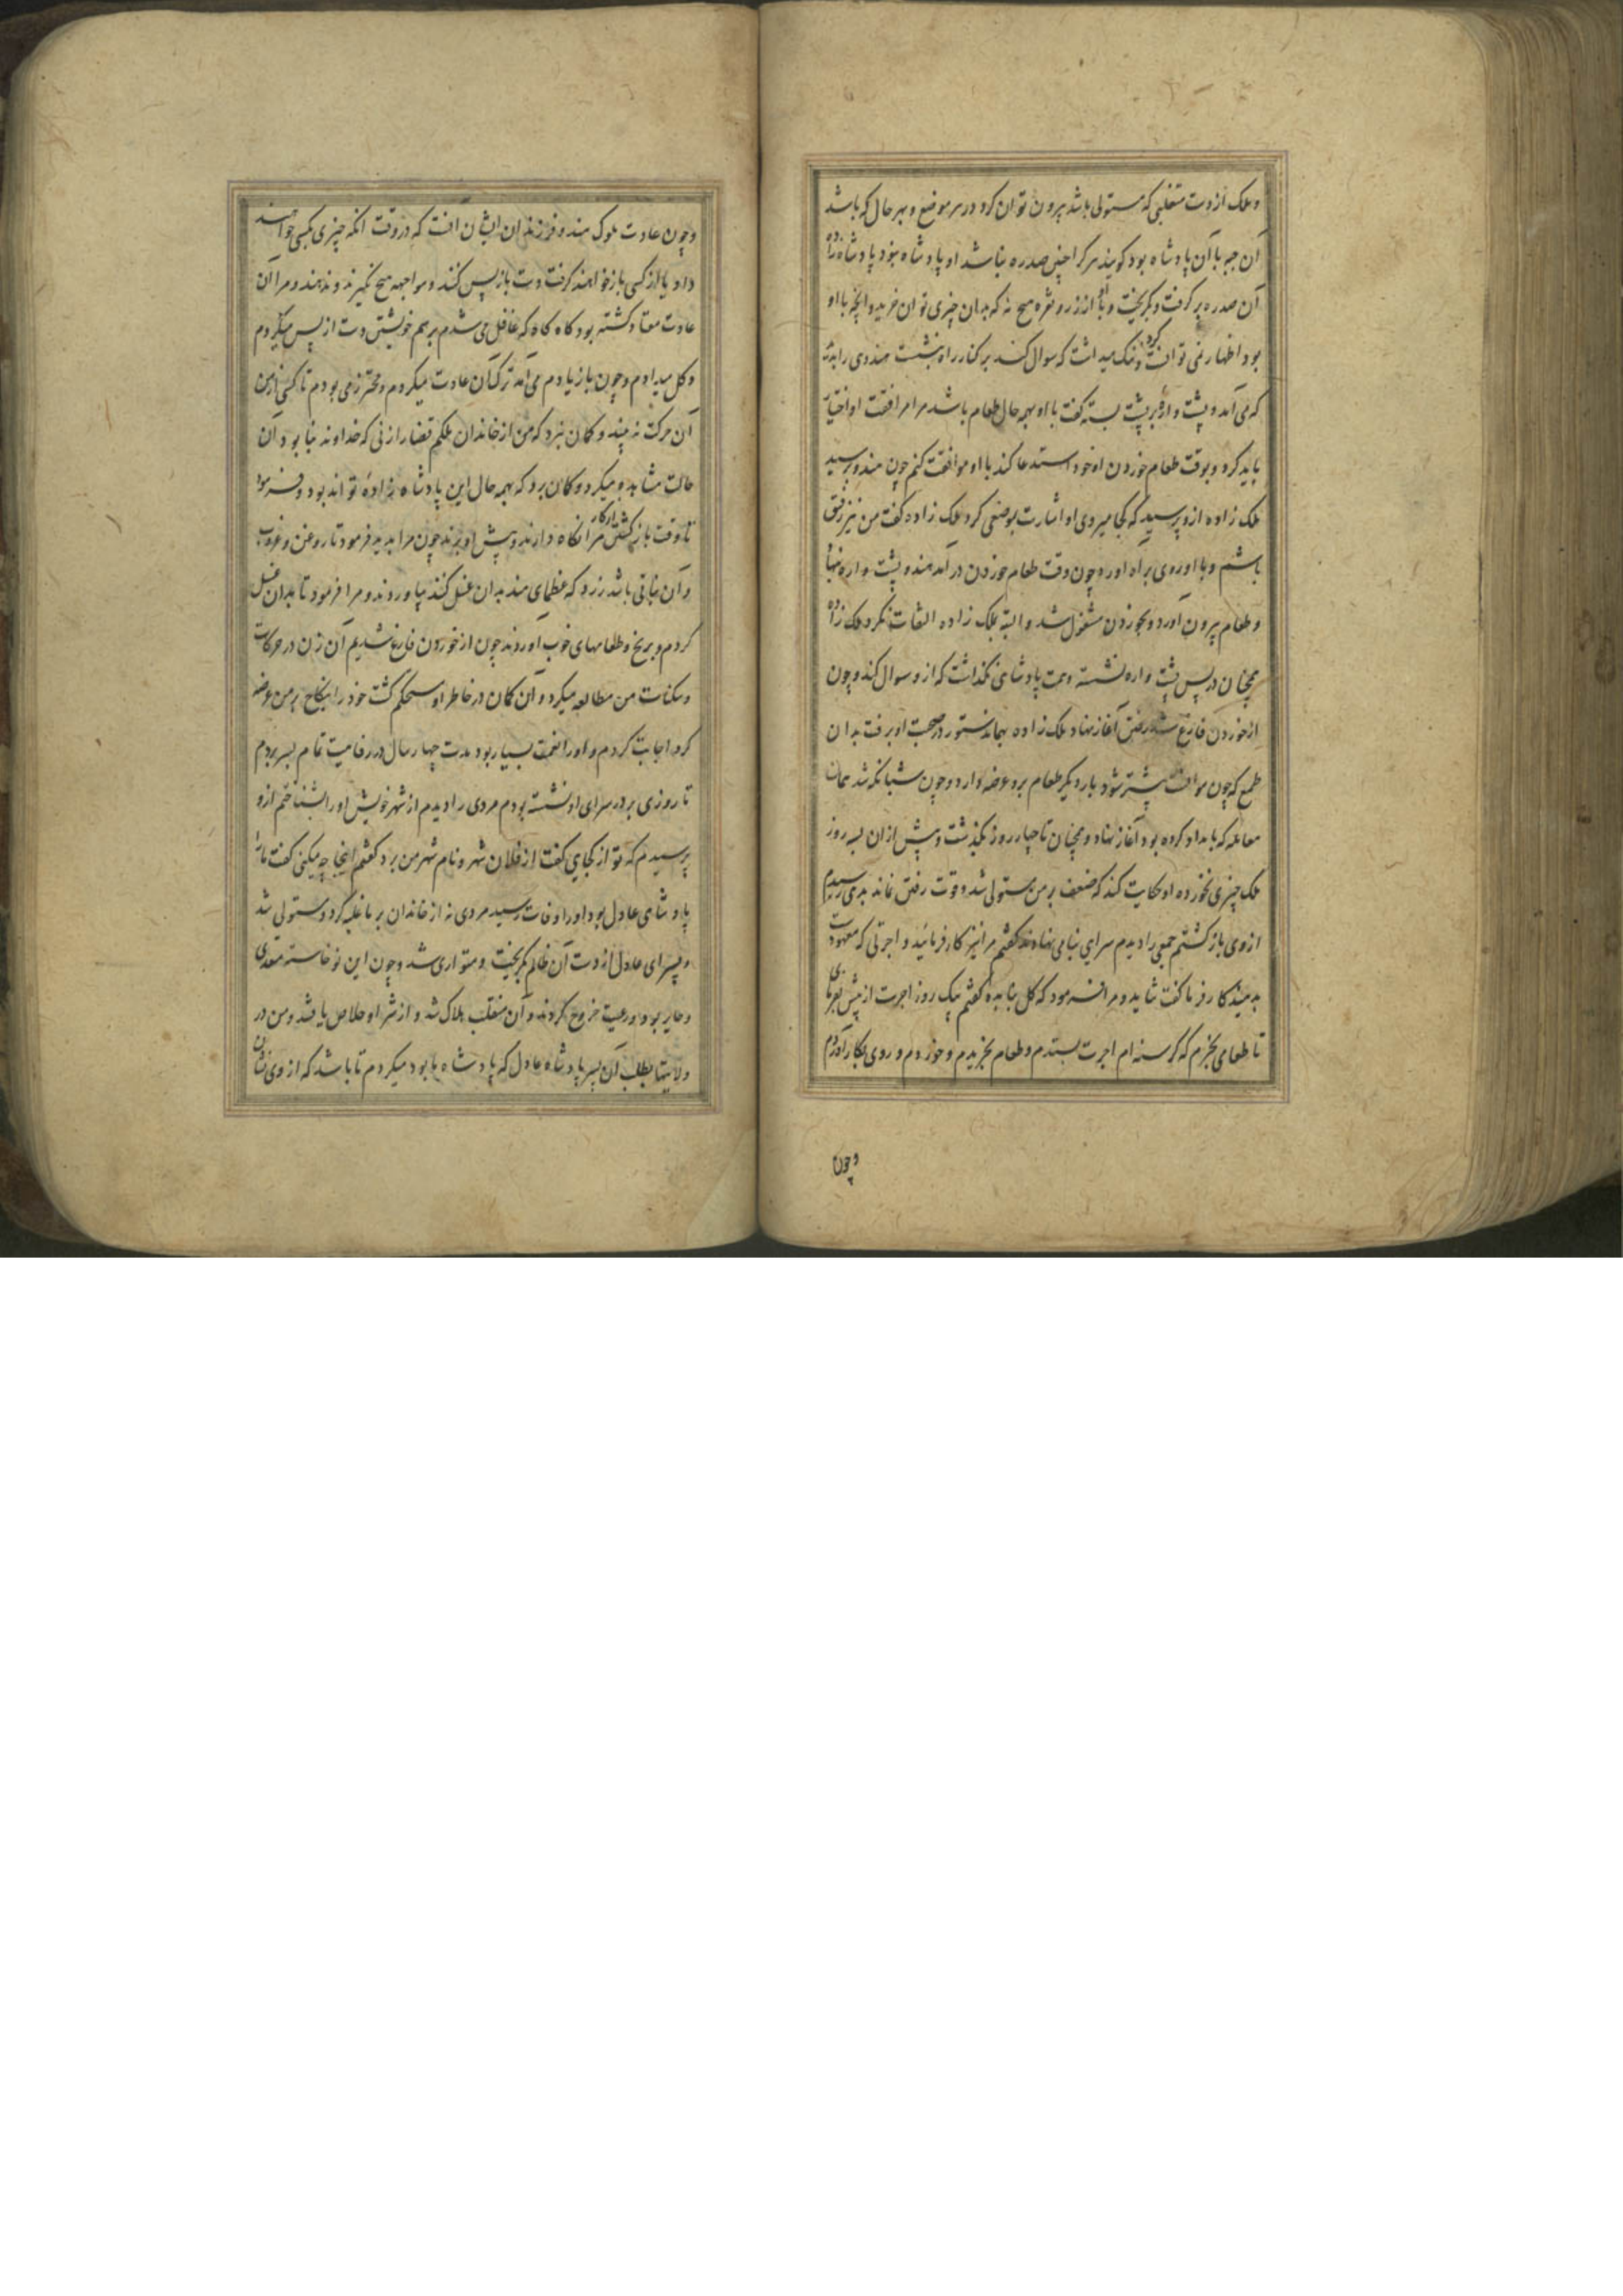 و ملک از دست متغلبی که مستولی باشد بیرون توان کرد در هر موضع و بهر حال که باشد
آن جبه با آن پادشاه بود کویند هر کرا اینچنین صدره نباشد او پادشاه نبود پادشاه زاده
آن صدره بر کرفت و بکریخت و با او از زر و نقره هیچ نه که بدان چیزی توان خرید و انچه با او
بود اظهار نمی توانست کرد و ننک میداشت که سوال کند بر کنار راه بنشست هندوی را بدید
که می آمد و پشت واره بر پشت بسته کفت با او بهمه حال طعام باشد مرا مرافقت او اختیار
باید کرد و بوقت طعام خوردن اه خود استدعا کند با او موافقت کنم چون هندو برسید
ملک زاده ازو پرسید که کجا میروی او اشارت بموضعی کرد ملک زاده کفت من نیز رفیق
باشم و با او روی براه اورد و چون وقت طعام خوردن در آمد هندو پشت واره بنهاد
و طعام بیرون آورد و بخوردن مشغول شد و البته بملک زاده التفات نکرد ملک زاده
همچنان در پس پشت واره نشسته و همت پادشاهی نکذاشت که ازو سوال کند و چون
از خوردن فارغ شد رفتن آغاز نهاد ملک زاده همچنانک دستور در صحبت او برفت بدان
طمع که چون موافقت بیشتر شود بار دیکر طعام برو عرضه دارد و چون شبانکه شد همان
معامله که بامداد کرده بود آغاز نهاد و همچنان تا چهار روز بکذشت و پیش ازان بسه روز
ملک چیزی نخورده او حکایت کند که ضعف بر من مستولی شد و قوت رفتن نماند بدیهی رسیدم
از وی باز کشتم جمعی را دیدم سرایی بنا می نهادند کفتم مرا نیز کار فرمائید و اجرتی که معهودست
بدهید کار فرما کفت شاید و مرا فرمود که کل بنا بده کفتم یک روز اجرت از پیش بفرمای
تا طعامی بخرم که کرسنه ام اجرت بستدم و طعام بخریدم و خوردم و روی بکار آوردم
و چون
و چون عادت ملوک هند و فرزندان ایشان انست که در وقت انکه چیزی بکسی خواهند
داد یا از کسی باز خواهند کرفت دست باز پس کنند و مواجهه هیچ نکیرند و ندهند و مرا آن
عادت معتاد کشته بود کاه کاه که غافل می شدم بر رسم خویشتن دست از پس میکردم
و کل میدادم و چون باز یادم می آمد ترک آن عادت میکردم و محترز می بودم تا کسی از من
آن حرکت نبیند و کمان نبرد که من از خاندان ملکم قضا را زنی که خداوند بنا بود آن
حالت مشاهده میکرد و کمان برد که بهمه حال این پادشاه زاده تواند بود و فرمود
تا وقت باز کشتن از کار مرا نکاه دارند و پیش او برند چون مرا بدید فرمود تا روغن و غروب
و آن نباتی باشد زرد که عظمای هند بدان غسل کنند بیاوردند و مرا فرمود تا بدان غسل
کردم و برنج و طعامهای خوب آوردند چون از خوردن فارغ شدیم آن زن در حرکات
و سکنات من مطالعه میکرد و آن کمان در خاطر او مستحکم کشت خود را بنکاح بر من عرضه
کرد اجابت کردم و اورا نعمت بسیار بود مدت چهار سال در رفاهیت تمام بسر بردم
تا روزی بر در سرای او نشسته بودم مردی را دیدم از شهر خویش اورا بشناختم ازو
پرسیدم که تو از کجایی کفت از فلان شهر و نام شهر من برد کفتم اینجا چه میکنی کفت مارا
پادشاهی عادل بود اورا وفات رسید مردی نه از خاندان بر ما غلبه کرد و مستولی شد
و پسر ای عادل از دست آن ظالم بکریخت و متواری شد و چون این نو خاسته متعدی
و جایر بود رعیت خروج کردند و آن متغلب هلاک شد و از شر او خلاص یافتند و من در
ولایتها بطلب آن پسر پادشاه عادل که پادشاه ما بود میکردم تا باشد که از وی نشان